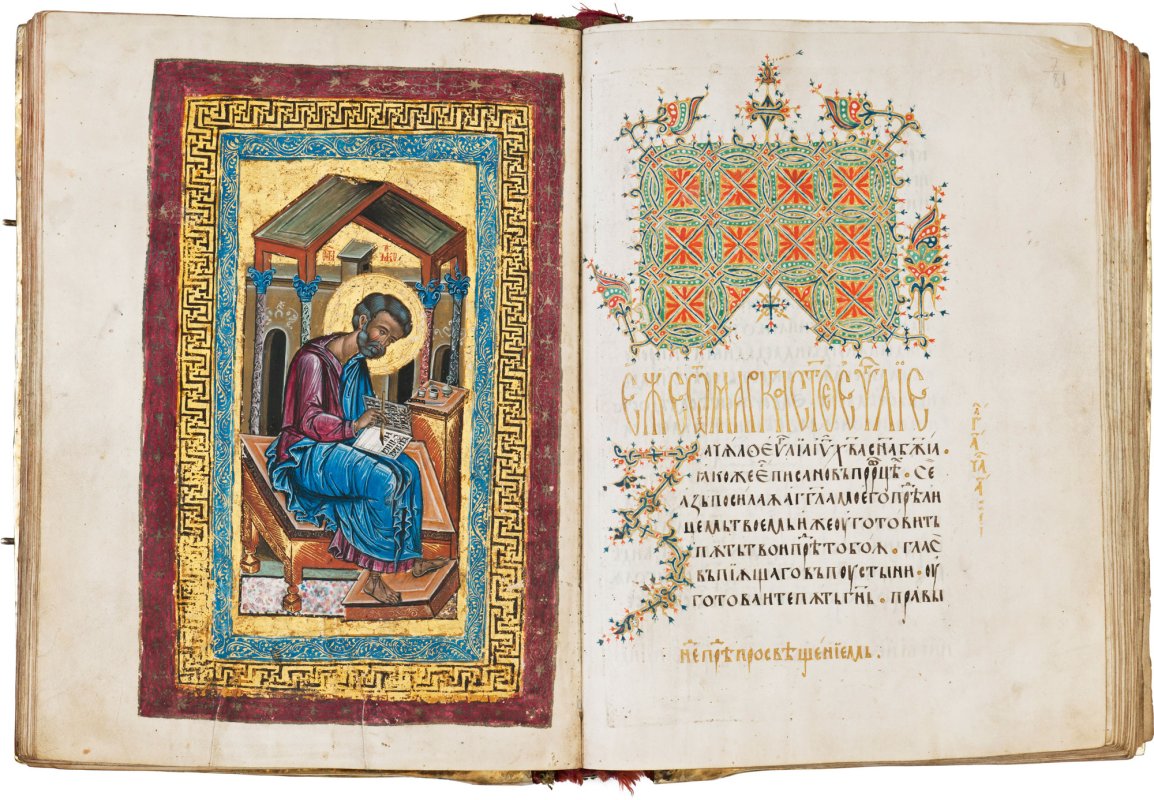 ЕЖЕ Ѿ МАРКА СТ҃ОЕ ЕУ҃ЛІЕ
Зачѧло еѵ҃лїа іу҃ х҃ва сн҃а бж҃їи
ꙗкоже е҆ писано въ прⷪ҇роцѣ · Се
азъ посилаѫ агг҃ла моего прѣ ли
цемь твоемь иже оуготовить
пѫть твои прѣ тобоѫ · глас
въпїѫщаго въ поустыни · оу
готоваите пѫть гн҃ь · правы
нⷣе прⷣѣ просвѣщенїемь